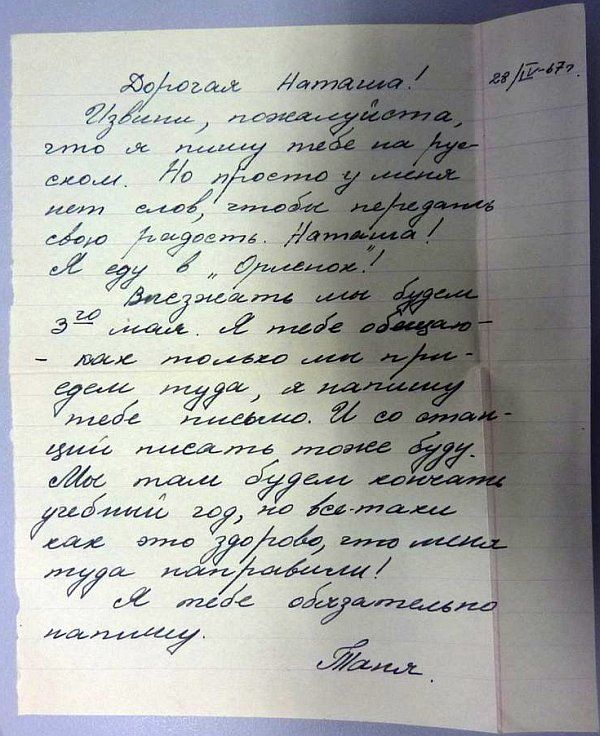 28/IV-67г.
Дорогая Наташа!
Извини, пожалуйста,
что я пишу тебе на рус-
ском. Но просто у меня
нет слов, чтобы передать
свою радость. Наташа!
Я еду в „Орленок"!
Выезжать мы будем
3го мая. Я тебе обещаю-
- как только мы при-
едем туда, я напишу
тебе письмо. И со стан-
ций писать тоже буду.
Мы там будем кончать
учебный год, но всё-таки
как это здорово, что меня
туда направили!
Я тебе обязательно
напишу.
Таня.